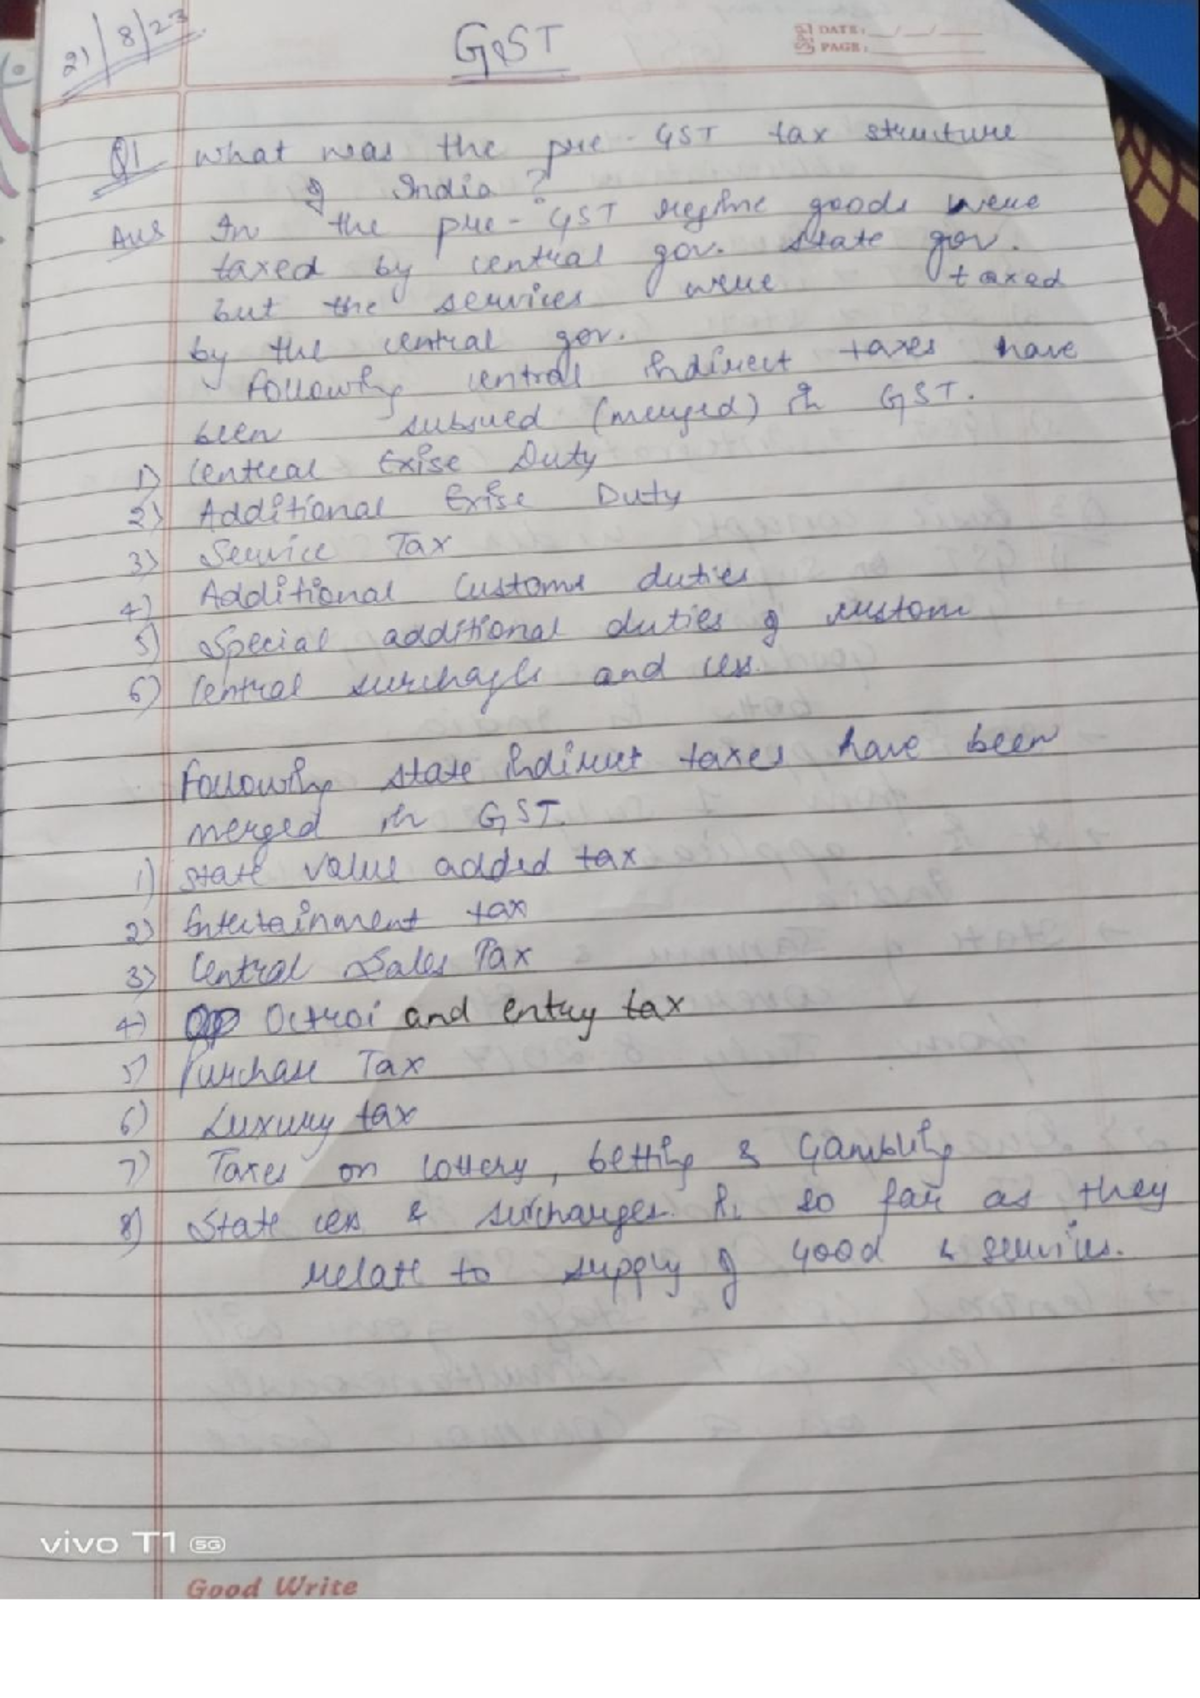 21/8/23
GST
DATE: __/__/__
PAGE:
Q1 What was the pre-GST tax structure
of India?
Ans In the pre-GST regime goods were
taxed by central gov. state gov.
but the services were taxed
by the central gov.
Following central indirect taxes have
been subsued (merged) in GST.
1) Central Exise Duty
2) Additional Exise Duty
3) Service Tax
4) Additional Customs duties
5) Special additional duties of custom
6) Central surchagls and cess.
Following state indirect taxes have been
merged in GST.
1) State value added tax
2) Entertainment tax
3) Central Sales Tax
4) Octroi and entry tax
5) Purchase Tax
6) Luxury tax
7) Taxes on lottery, betting & Gambling
8) State cess & surcharges. so far as they
relate to supply of Good & services.
vivo T1 5G
Good Write